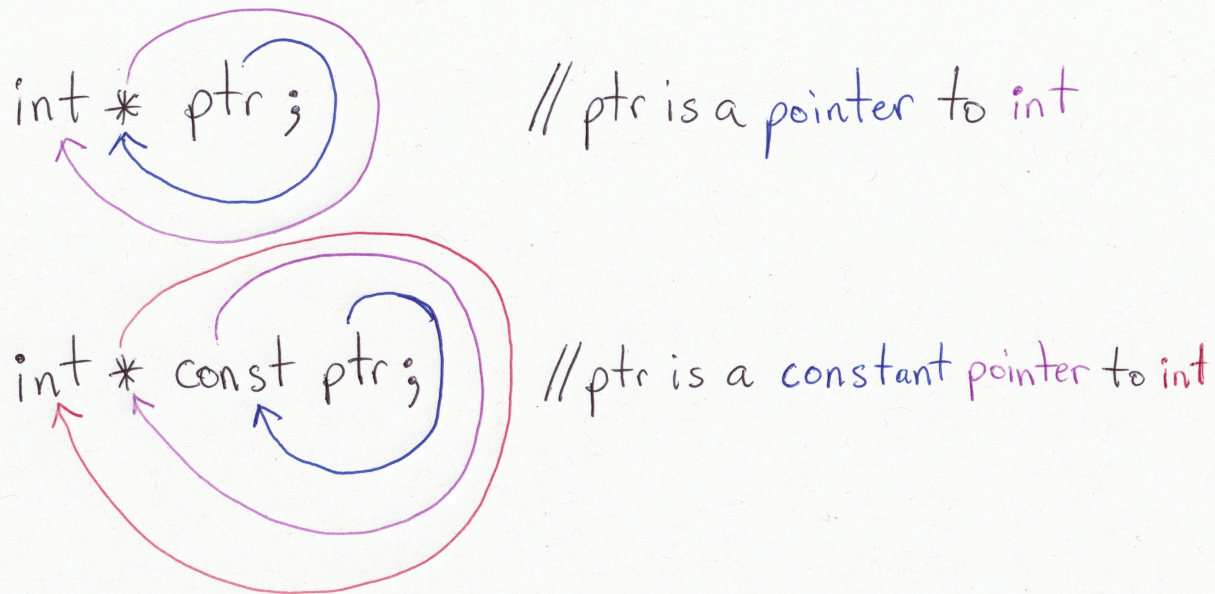 int * ptr; // ptr is a pointer to int
int * const ptr; // ptr is a constant pointer to int